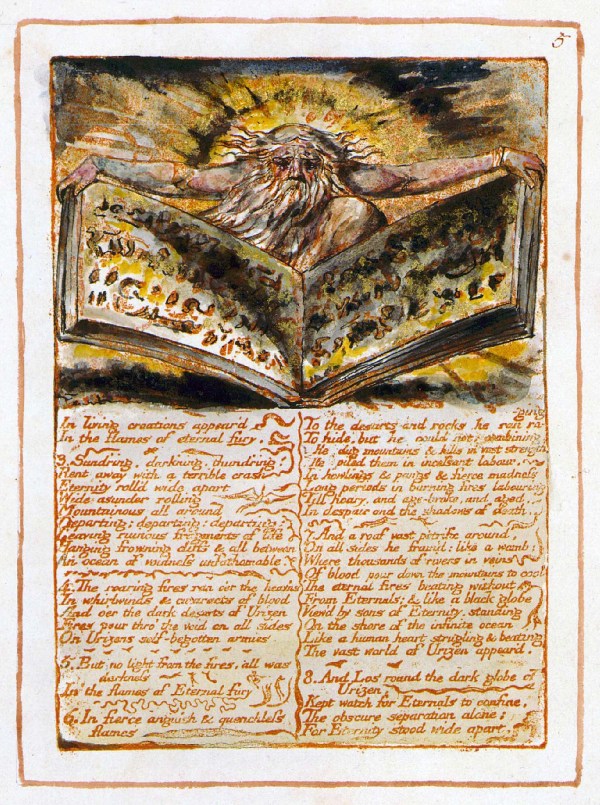 5
In living creations appear'd
In the flames of eternal fury.
3. Sundring, darkning, thundring
Rent away with a terrible crash
Eternity roll'd wide apart
Wide asunder rolling
Mountainous all around
Departing; departing; departing:
Leaving ruinous fragments of life
Hanging frowning cliffs & all between
An ocean of voidness unfathomable.
4. The roaring fires ran o'er the heav'ns
In whirlwinds & cataracts of blood
And o'er the dark desarts of Urizen
Fires pour thro' the void on all sides
On Urizens self-begotten armies.
5. But no light from the fires. all was
darkness
In the flames of Eternal fury
6. In fierce anguish & quenchless
flames
-ging
To the desarts and rocks he ran ra-
To hide, but he could not: combining
He dug mountains & hills in vast strength,
He piled them in incessant labour,
In howlings & pangs & fierce madness
Long periods in burning fires labouring
Till hoary, and age-broke, and aged,
In despair and the shadows of death.
7. And a roof vast petrific around,
On all sides he fram'd: like a womb;
Where thousands of rivers in veins
Of blood pour down the mountains to cool
The eternal fires beating without
From Eternals; & like a black globe
View'd by sons of Eternity, standing
On the shore of the infinite ocean
Like a human heart strugling & beating
The vast world of Urizen appear'd.
8. And Los round the dark globe of
Urizen
Kept watch for Eternals to confine,
The obscure separation alone;
For Eternity stood wide apart,